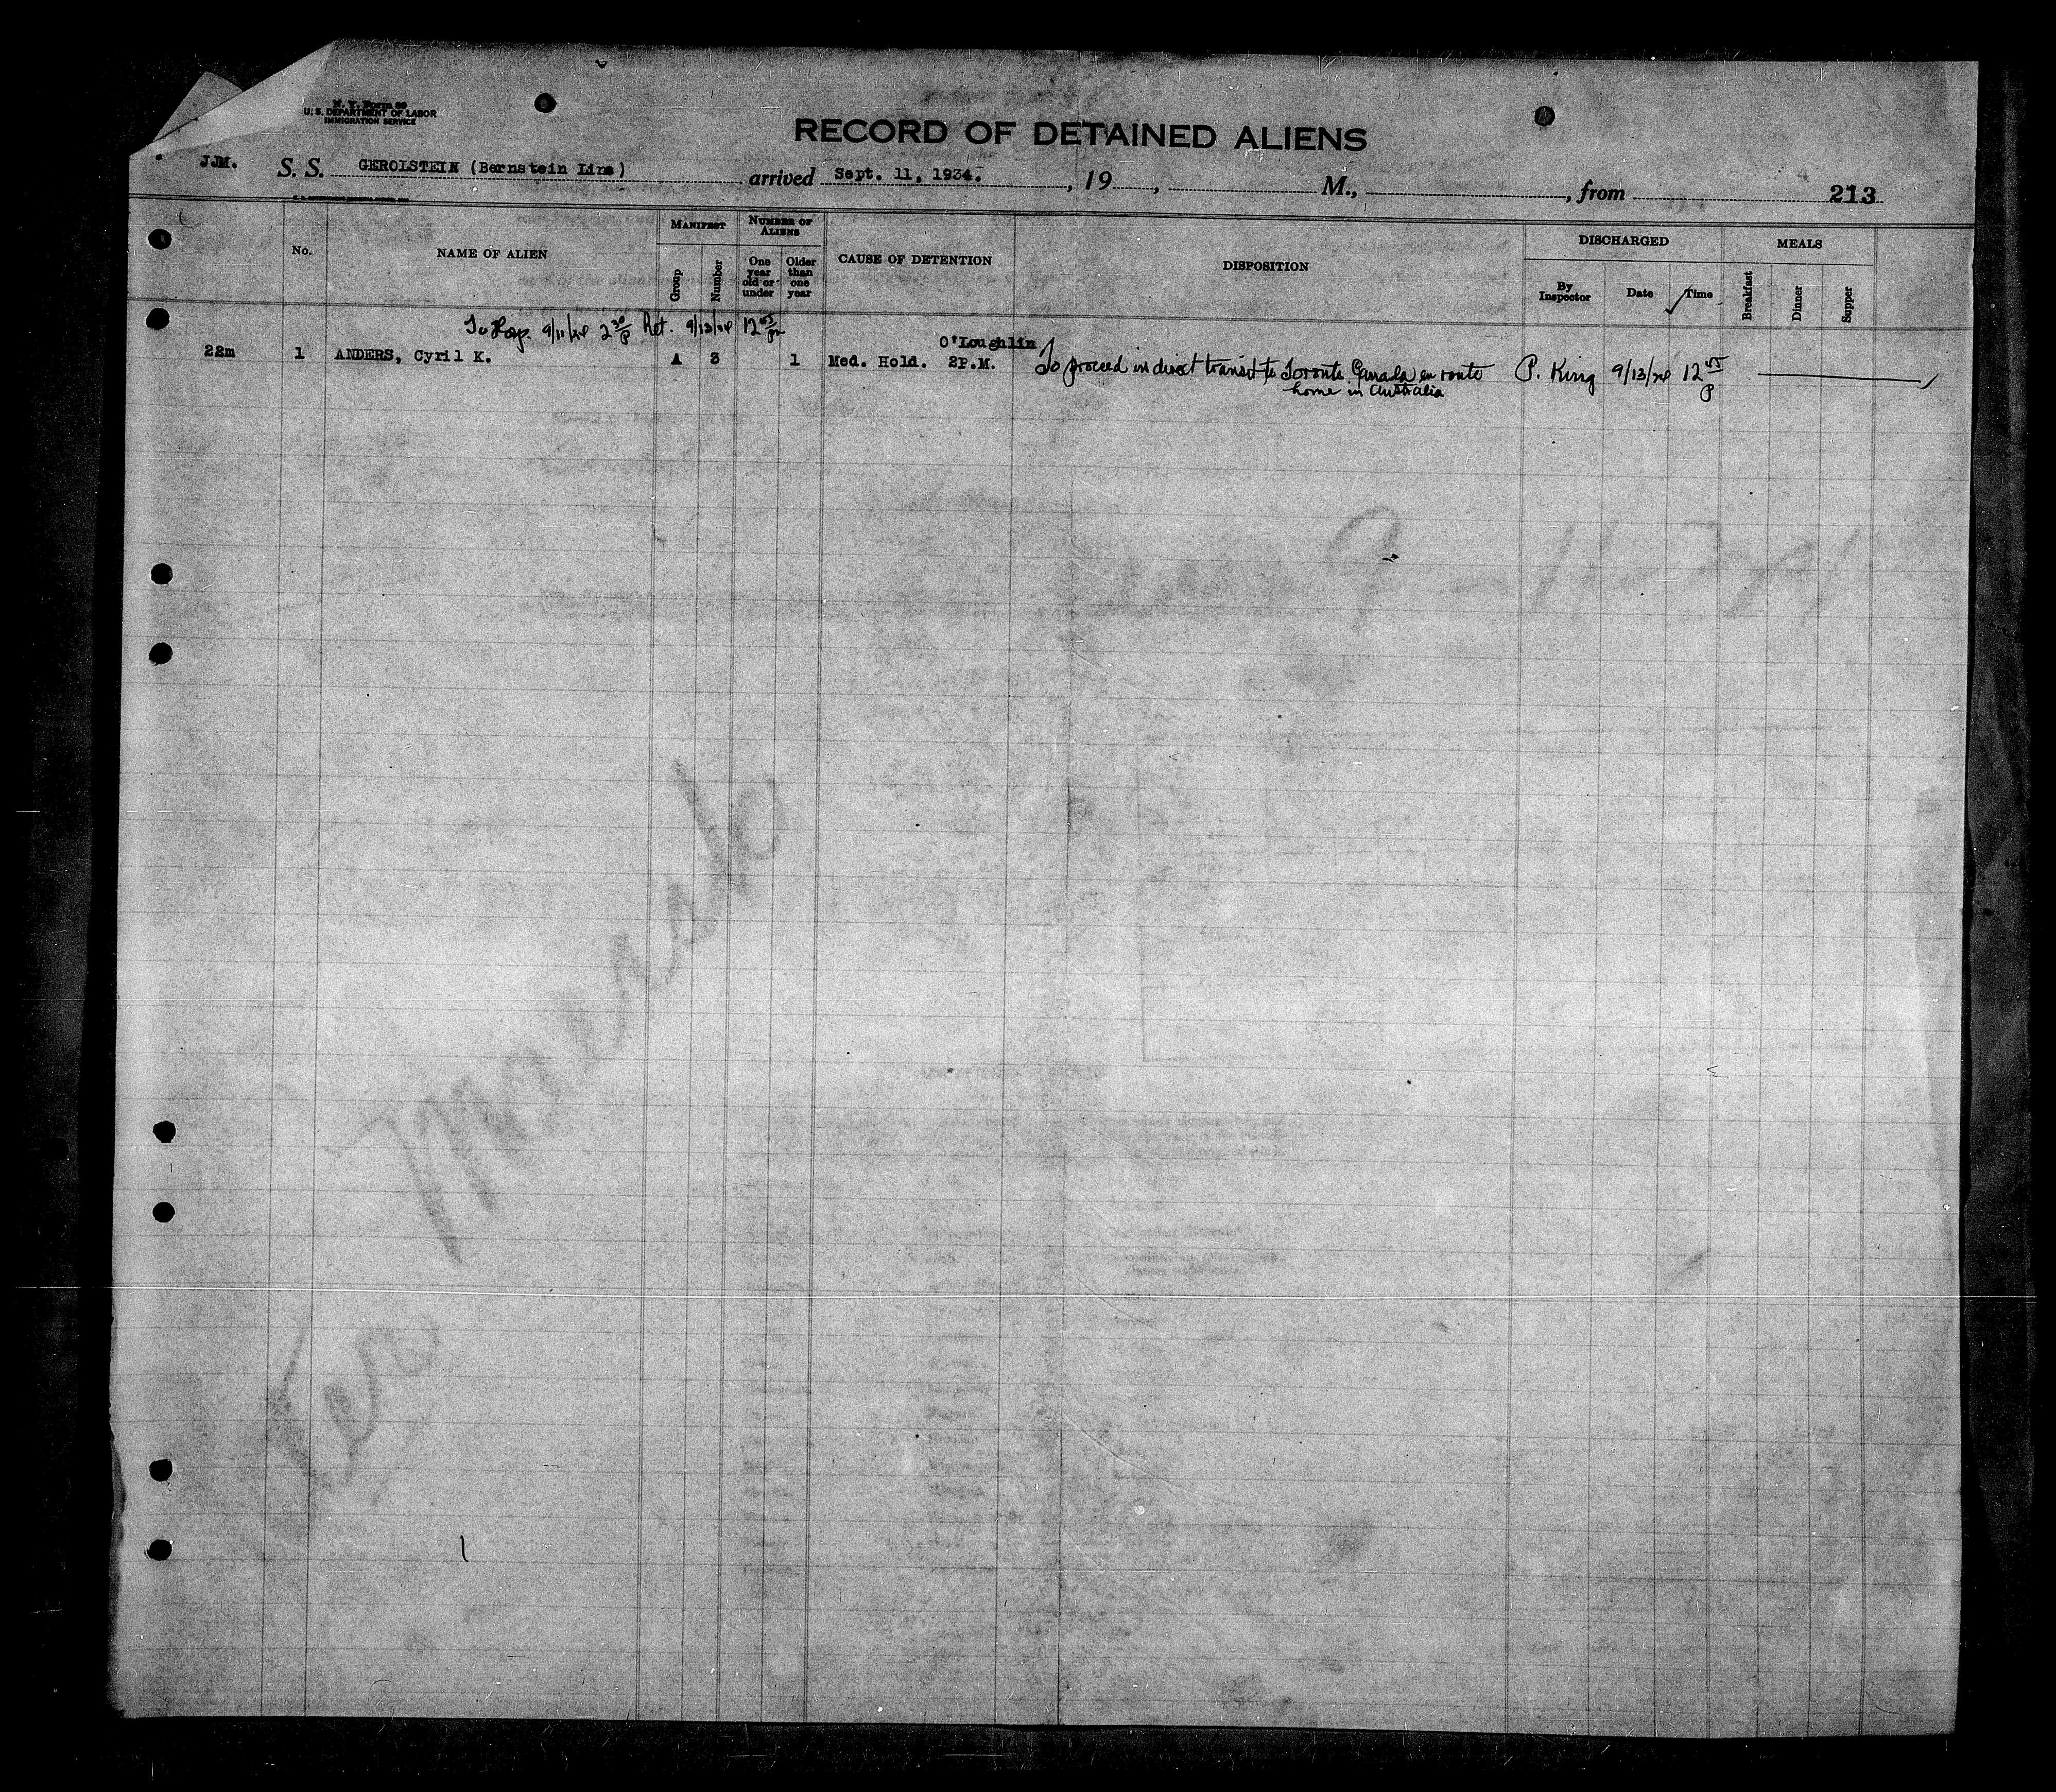 N. Y. Form 89
U. S. DEPARTMENT OF LABOR
IMMIGRATION SERVICE
RECORD OF DETAINED ALIENS
J.M. S. S. GEROLSTEIN (Bernstein Line) arrived Sept. 11, 1934. , 19 , M., , from 213
No. NAME OF ALIEN MANIFEST Group Number NUMBER OF ALIENS One year old or under Older than one year CAUSE OF DETENTION DISPOSITION DISCHARGED By Inspector Date Time MEALS Breakfast Dinner Supper
To Hosp. 9/11/34 2 30 P Ret. 9/13/34 12 45 pm
O'Loughlin
22m 1 ANDERS, Cyril K. A 3 1 Med. Hold. 2P.M. To proceed in direct transit to Toronto Canada en route P. King 9/13/34 12 45 P
home in Australia
1